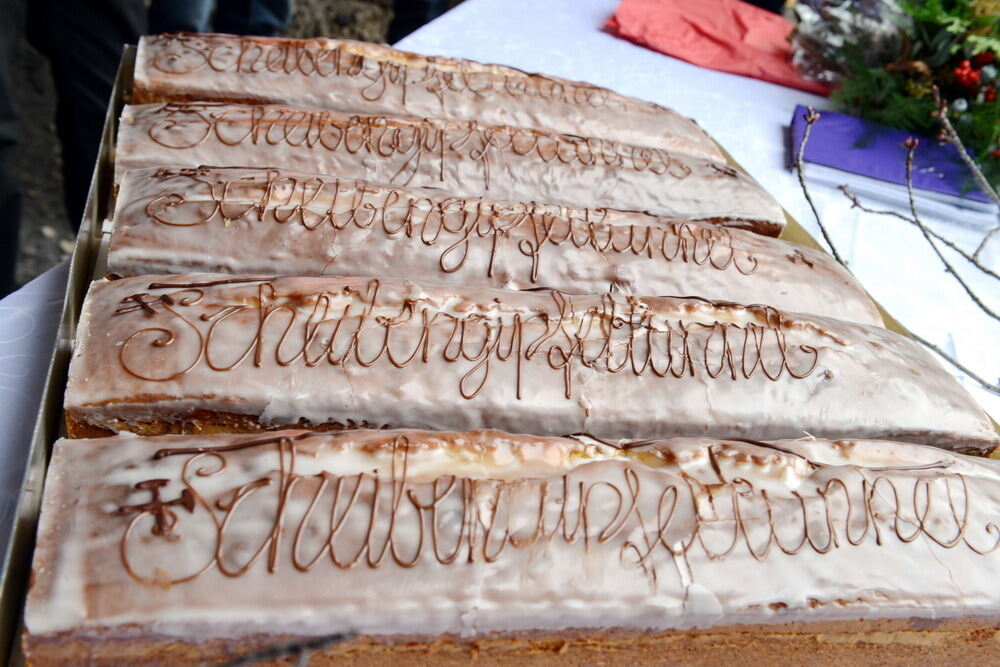 Scheibengipfeltunnel
Scheibengipfeltunnel
Scheibengipfeltunnel
Scheibengipfeltunnel
Scheibengipfeltunnel